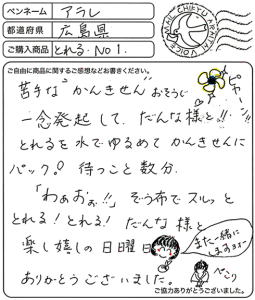 ペンネーム アラレ
都道府県 広島県
ご購入商品 とれる。NO1.
MAIL CHIEYU ARAKI VOICE
ご自由に商品に関するご感想などお書きください。
苦手な"かんきせん"おそうじ
一念発起して、だんな様と!!
とれるを水でゆるめて かんきせんに
パック♪ 待つこと数分.
「わぁおぉ!!」 ぞう布でスルッと
とれる!とれる! だんな様と
楽し嬉しの日曜日
ありがとうございました。
また一緒に
しますョ~
ピカーン
ぺこり
ご協力ありがとうございました。